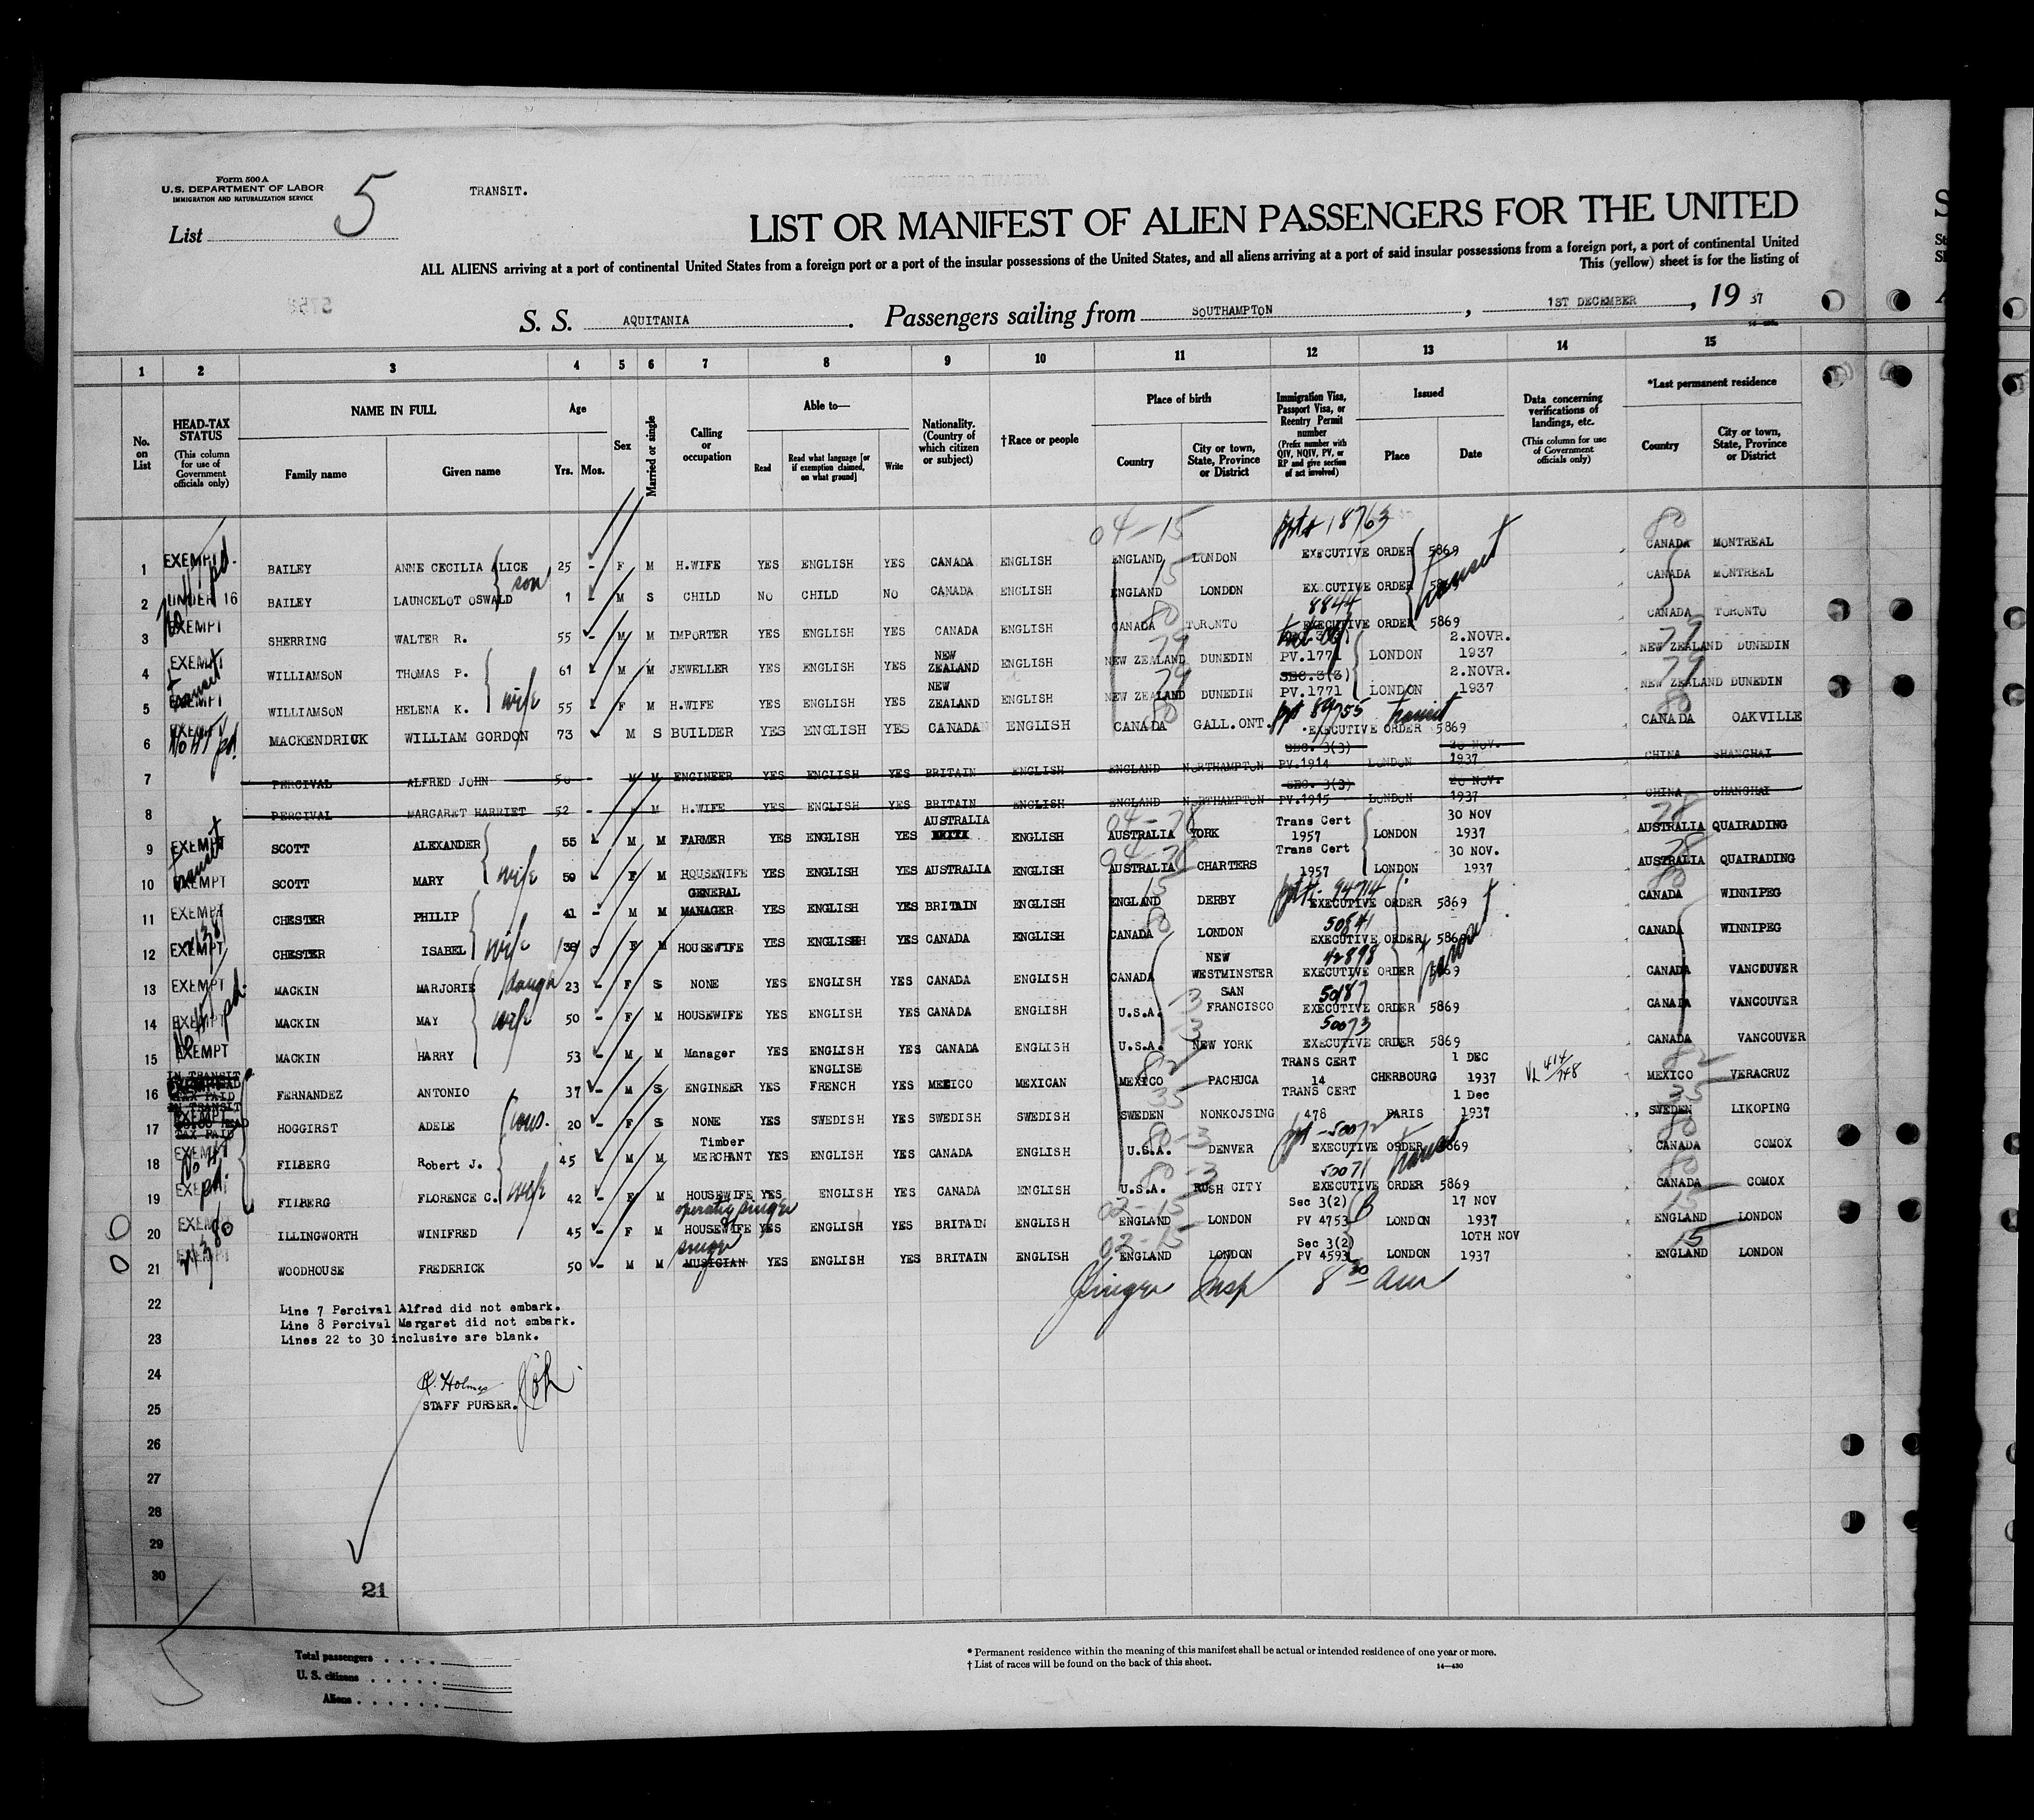 Form 500 A
U.S. DEPARTMENT OF LABOR
IMMIGRATION AND NATURALIZATION SERVICE
List 5
TRANSIT.
LIST OR MANIFEST OF ALIEN PASSENGERS FOR THE UNITED
ALL ALIENS arriving at a port of continental United States from a foreign port or a port of the insular possessions of the United States, and all aliens arriving at a port of said insular possessions from a foreign port, a port of continental United
This (yellow) sheet is for the listing of
S. S. AQUITANIA. Passengers sailing from SOUTHAMPTON, 1ST DECEMBER, 19 37
1 2 3 4 5 6 7 8 9 10 11 12 13 14 15
No. on List
HEAD-TAX STATUS (This column for use of Government officials only)
NAME IN FULL Family name Given name
Age Yrs. Mos.
Sex
Married or single
Calling or occupation
Able to— Read Read what language [or if exemption claimed, on what ground] Write
Nationality. (Country of which citizen or subject)
†Race or people
Place of birth Country City or town, State, Province or District
Immigration Visa, Passport Visa, or Reentry Permit number (Prefix number with QIV, NQIV, PV, or RP and give section of act involved)
Issued Place Date
Data concerning verifications of landings, etc. (This column for use of Government officials only)
*Last permanent residence Country City or town, State, Province or District
04-15 18763 80
1 EXEMPT BAILEY ANNE CECILIA ALICE 25 - F M H.WIFE YES ENGLISH YES CANADA ENGLISH ENGLAND LONDON EXECUTIVE ORDER 5869 CANADA MONTREAL
son 15 transit
2 UNDER 16 BAILEY LAUNCELOT OSWALD 1 - M S CHILD NO CHILD NO CANADA ENGLISH ENGLAND LONDON EXECUTIVE ORDER CANADA MONTREAL
80 8844
3 EXEMPT SHERRING WALTER R. 55 - M M IMPORTER YES ENGLISH YES CANADA ENGLISH CANADA TORONTO EXECUTIVE ORDER 5869 CANADA TORONTO
4 EXEMPT WILLIAMSON THOMAS P. 61 M M JEWELLER YES ENGLISH YES NEW ZEALAND ENGLISH NEW ZEALAND DUNEDIN PV.1771 LONDON 2.NOVR. 1937 NEW ZEALAND DUNEDIN
79 79
transit wife
5 EXEMPT WILLIAMSON HELENA K. 55 F M H.WIFE YES ENGLISH YES NEW ZEALAND ENGLISH NEW ZEALAND DUNEDIN SEC.3(3) PV.1771 LONDON 2.NOVR. 1937 NEW ZEALAND DUNEDIN
80 transit 80
6 MACKENDRICK WILLIAM GORDON 73 M S BUILDER YES ENGLISH YES CANADA ENGLISH CANADA GALL.ONT. EXECUTIVE ORDER 5869 CANADA OAKVILLE
7 PERCIVAL ALFRED JOHN 56 - M M ENGINEER YES ENGLISH YES BRITAIN ENGLISH ENGLAND NORTHAMPTON SEC. 3(3) PV.1914 LONDON 20 NOV. 1937 CHINA SHANGHAI
8 PERCIVAL MARGARET HARRIET 52 - F M H.WIFE YES ENGLISH YES BRITAIN ENGLISH ENGLAND NORTHAMPTON SEC. 3(3) PV.1915 LONDON 20 NOV. 1937 CHINA SHANGHAI
04-78 78
9 EXEMPT SCOTT ALEXANDER 55 M M FARMER YES ENGLISH YES AUSTRALIA ENGLISH AUSTRALIA YORK Trans Cert 1957 LONDON 30 NOV 1937 AUSTRALIA QUAIRADING
transit wife 04-78 78
10 EXEMPT SCOTT MARY 59 F M HOUSEWIFE YES ENGLISH YES AUSTRALIA ENGLISH AUSTRALIA CHARTERS Trans Cert 1957 LONDON 30 NOV. 1937 AUSTRALIA QUAIRADING
15 94714 80
11 EXEMPT CHESTER PHILIP 41 - M M GENERAL MANAGER YES ENGLISH YES BRITAIN ENGLISH ENGLAND DERBY EXECUTIVE ORDER 5869 CANADA WINNIPEG
wife 80 50841
12 EXEMPT CHESTER ISABEL 38 F M HOUSEWIFE YES ENGLISH YES CANADA ENGLISH CANADA LONDON EXECUTIVE ORDER 5869 CANADA WINNIPEG
42898
13 EXEMPT MACKIN MARJORIE 23 - F S NONE YES ENGLISH YES CANADA ENGLISH CANADA NEW WESTMINSTER EXECUTIVE ORDER 5869 CANADA VANCOUVER
50187
14 EXEMPT MACKIN MAY wife 50 - F M HOUSEWIFE YES ENGLISH YES CANADA ENGLISH U.S.A. SAN FRANCISCO EXECUTIVE ORDER 5869 CANADA VANCOUVER
50073
15 EXEMPT MACKIN HARRY 53 - M M Manager YES ENGLISH YES CANADA ENGLISH U.S.A. NEW YORK EXECUTIVE ORDER 5869 CANADA VANCOUVER
82 82
16 IN TRANSIT FERNANDEZ ANTONIO 37 - M S ENGINEER YES ENGLISE FRENCH YES MEXICO MEXICAN MEXICO PACHUCA TRANS CERT 14 CHERBOURG 1 DEC 1937 MEXICO VERACRUZ
35 35
17 IN TRANSIT EXEMPT TAX PAID HOGGIRST ADELE 20 - F S NONE YES SWEDISH YES SWEDISH SWEDISH SWEDEN NONKOJSING TRANS CERT 478 PARIS 1 Dec 1937 SWEDEN LIKOPING
80-3 80
18 EXEMPT FILBERG Robert J. 45 M M Timber MERCHANT YES ENGLISH YES CANADA ENGLISH U.S.A. DENVER EXECUTIVE ORDER 5869 CANADA COMOX
wife 80-3 50071 80
19 EXEMPT FILBERG FLORENCE C. 42 - F M HOUSEWIFE YES ENGLISH YES CANADA ENGLISH U.S.A. RUSH CITY EXECUTIVE ORDER 5869 CANADA COMOX
02-15 15
20 EXEMPT ILLINGWORTH WINIFRED 45 - F M HOUSEWIFE YES ENGLISH YES BRITAIN ENGLISH ENGLAND LONDON Sec 3(2) PV 4753 LONDON 17 NOV 1937 ENGLAND LONDON
singer 02-15 15
21 EXEMPT WOODHOUSE FREDERICK 50 - M M MUSICIAN YES ENGLISH YES BRITAIN ENGLISH ENGLAND LONDON Sec 3(2) PV 4593 LONDON 10TH NOV 1937 ENGLAND LONDON
Insp 8 30 am
22 Line 7 Percival Alfred did not embark.
Line 8 Percival Margaret did not embark.
23 Lines 22 to 30 inclusive are blank.
24
Holmes
25 STAFF PURSER.
26
27
28
29
30
21
Total passengers
U. S. citizens
Aliens
* Permanent residence within the meaning of this manifest shall be actual or intended residence of one year or more.
† List of races will be found on the back of this sheet.
14—430